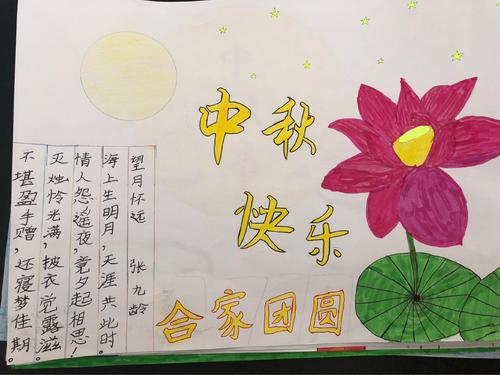 中秋
快乐
合家团圆
望月怀远 张九龄
海上生明月,天涯共此时。
情人怨遥夜,竟夕起相思!
灭烛怜光满,披衣觉露滋。
不堪盈手赠,还寝梦佳期。